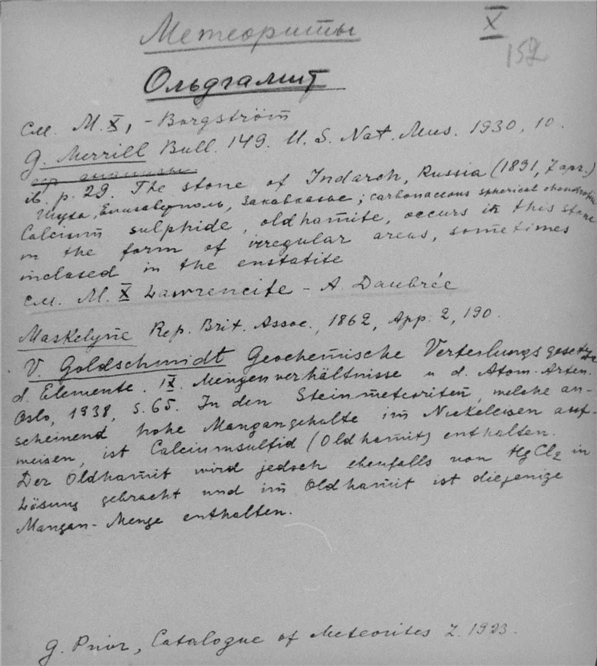 Метеориты
X
152
Ольдгамит
см. M. X, - Borgström
G. Merrill Bull. 149. U. S. Nat. Mus. 1930, 10.
ib. p. 29. The stone of Indarch, Russia (1891, 7 apr.)
Шуша, Елисаветполь, Закавказье; carbonaceous spherical chondrite
Calcium sulphide, oldhamite, occurs in this stone
in the form of irregular areas, sometimes
inclosed in the enstatite
см. M. X Lawrencite - A. Daubrée
Maskelyne Rep. Brit. Assoc., 1862, App. 2, 190.
V. Goldschmidt Geochemische Verteilungsgesetze
d. Elemente. IX. Mengenverhältnisse u. d. Atom-Arten.
Oslo, 1938, S. 65. In den Steinmeteoriten, welche an-
scheinend hohe Mangangehalte im Nickeleisen auf-
weisen, ist Calciumsulfid (Oldhamit) enthalten.
Der Oldhamit wird jedoch ebenfalls von HgCl2 in
Lösung gebracht und im Oldhamit ist diejenige
Mangan-Menge enthalten.
G. Prior, Catalogue of Meteorites L. 1923.